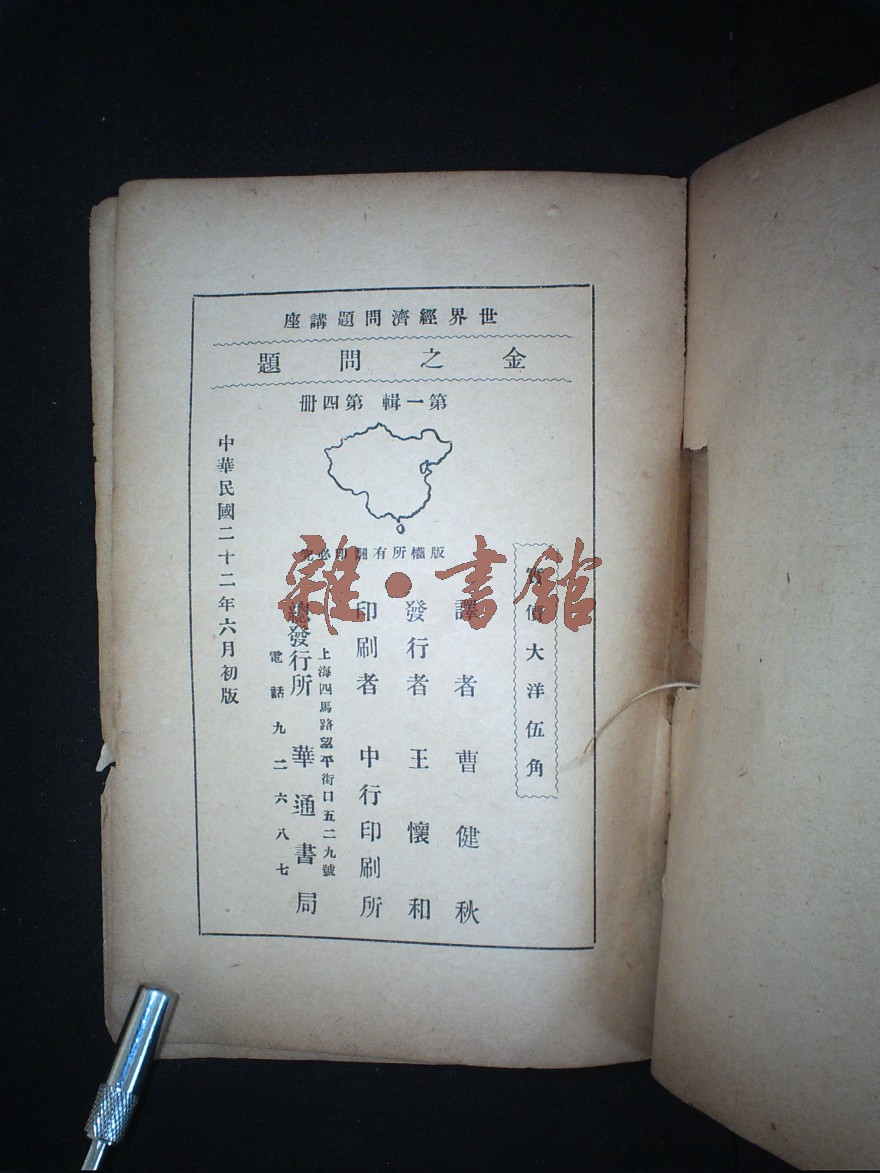 世界經濟問題講座
金之問題
第一輯 第四冊
版權所有翻印必究
實價大洋伍角
譯者曹健秋
發行者王懷和
印刷者中行印刷所
上海四馬路望平街口五二九號
總發行所華通書局
電話九二六八七
中華民國二十二年六月初版
雜·書館